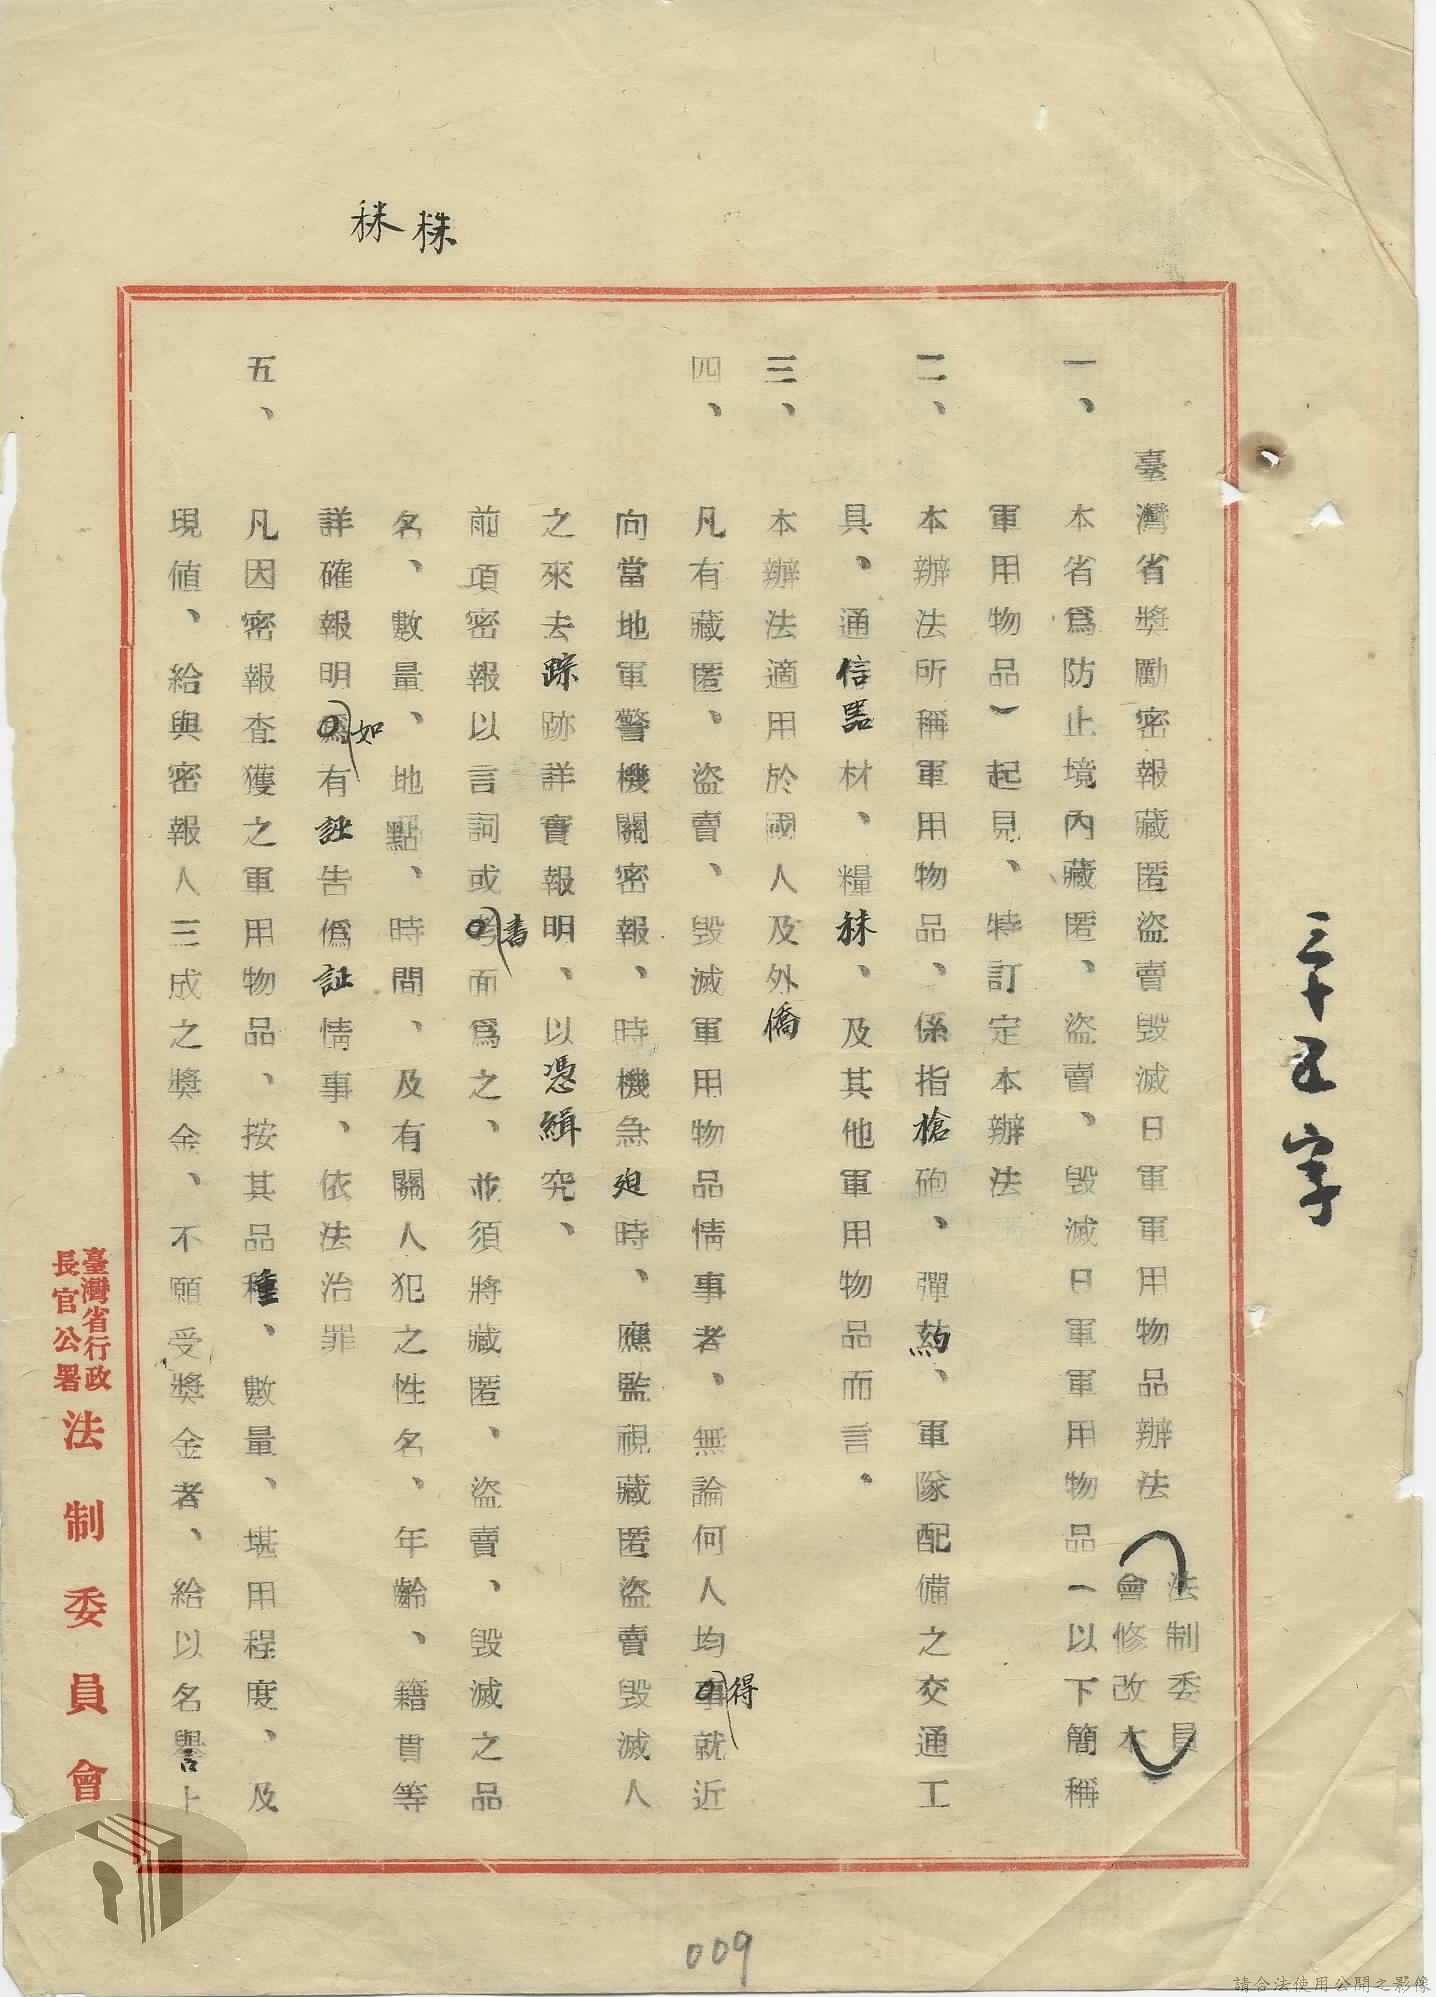 秣 秣
三十五字
臺灣省獎勵密報藏匿盜賣毀滅日軍軍用物品辦法
法制委員
會修改本
一、本省為防止境內藏匿、盜賣、毀滅日軍軍用物品（以下簡稱
軍用物品）起見、特訂定本辦法
二、本辦法所稱軍用物品、係指槍砲、彈葯、軍隊配備之交通工
具、通信器材、糧秣、及其他軍用物品而言。
三、本辦法適用於國人及外僑
四、凡有藏匿、盜賣、毀滅軍用物品情事者、無論何人均得就近
向當地軍警機關密報、時機急迫時、應監視藏匿盜賣毀滅人
之來去踪跡詳實報明、以憑緝究、
前項密報以言詞或書面為之、並須將藏匿、盜賣、毀滅之品
名、數量、地點、時間、及有關人犯之性名、年齡、籍貫等
詳確報明如有誣告偽証情事、依法治罪
五、凡因密報查獲之軍用物品、按其品種、數量、堪用程度、及
現值、給與密報人三成之獎金、不願受獎金者、給以名譽上
臺灣省行政
長官公署
法制委員會
009
請合法使用公開之影像